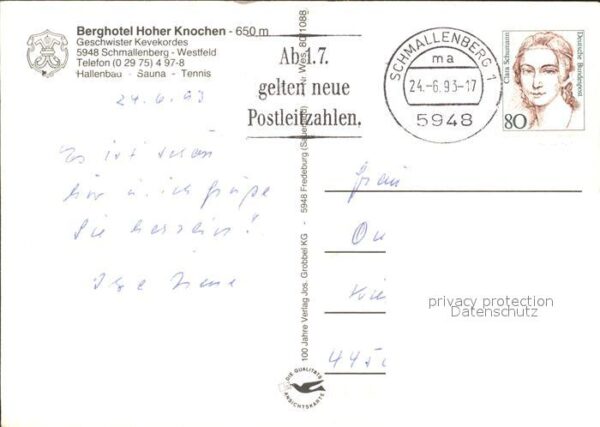 Berghotel Hoher Knochen - 650 m
Geschwister Kevekordes
5948 Schmallenberg - Westfeld
Telefon (0 29 75) 4 97-8
Hallenbau · Sauna · Tennis
24.6.93
Es ist schön
hier u. ich grüße
Sie herzlich!
Ihre
Ab 1.7.
gelten neue
Postleitzahlen.
SCHMALLENBERG 1
ma
24.-6.93-17
5948
Clara Schumann
Deutsche Bundespost
80
100 Jahre Verlag Jos. Grobbel KG · 5948 Fredeburg (Sauerland) Nr Wes. 80/1088
Frau
445
privacy protection
Datenschutz
DIE QUALITÄTS
ANSICHTSKARTE